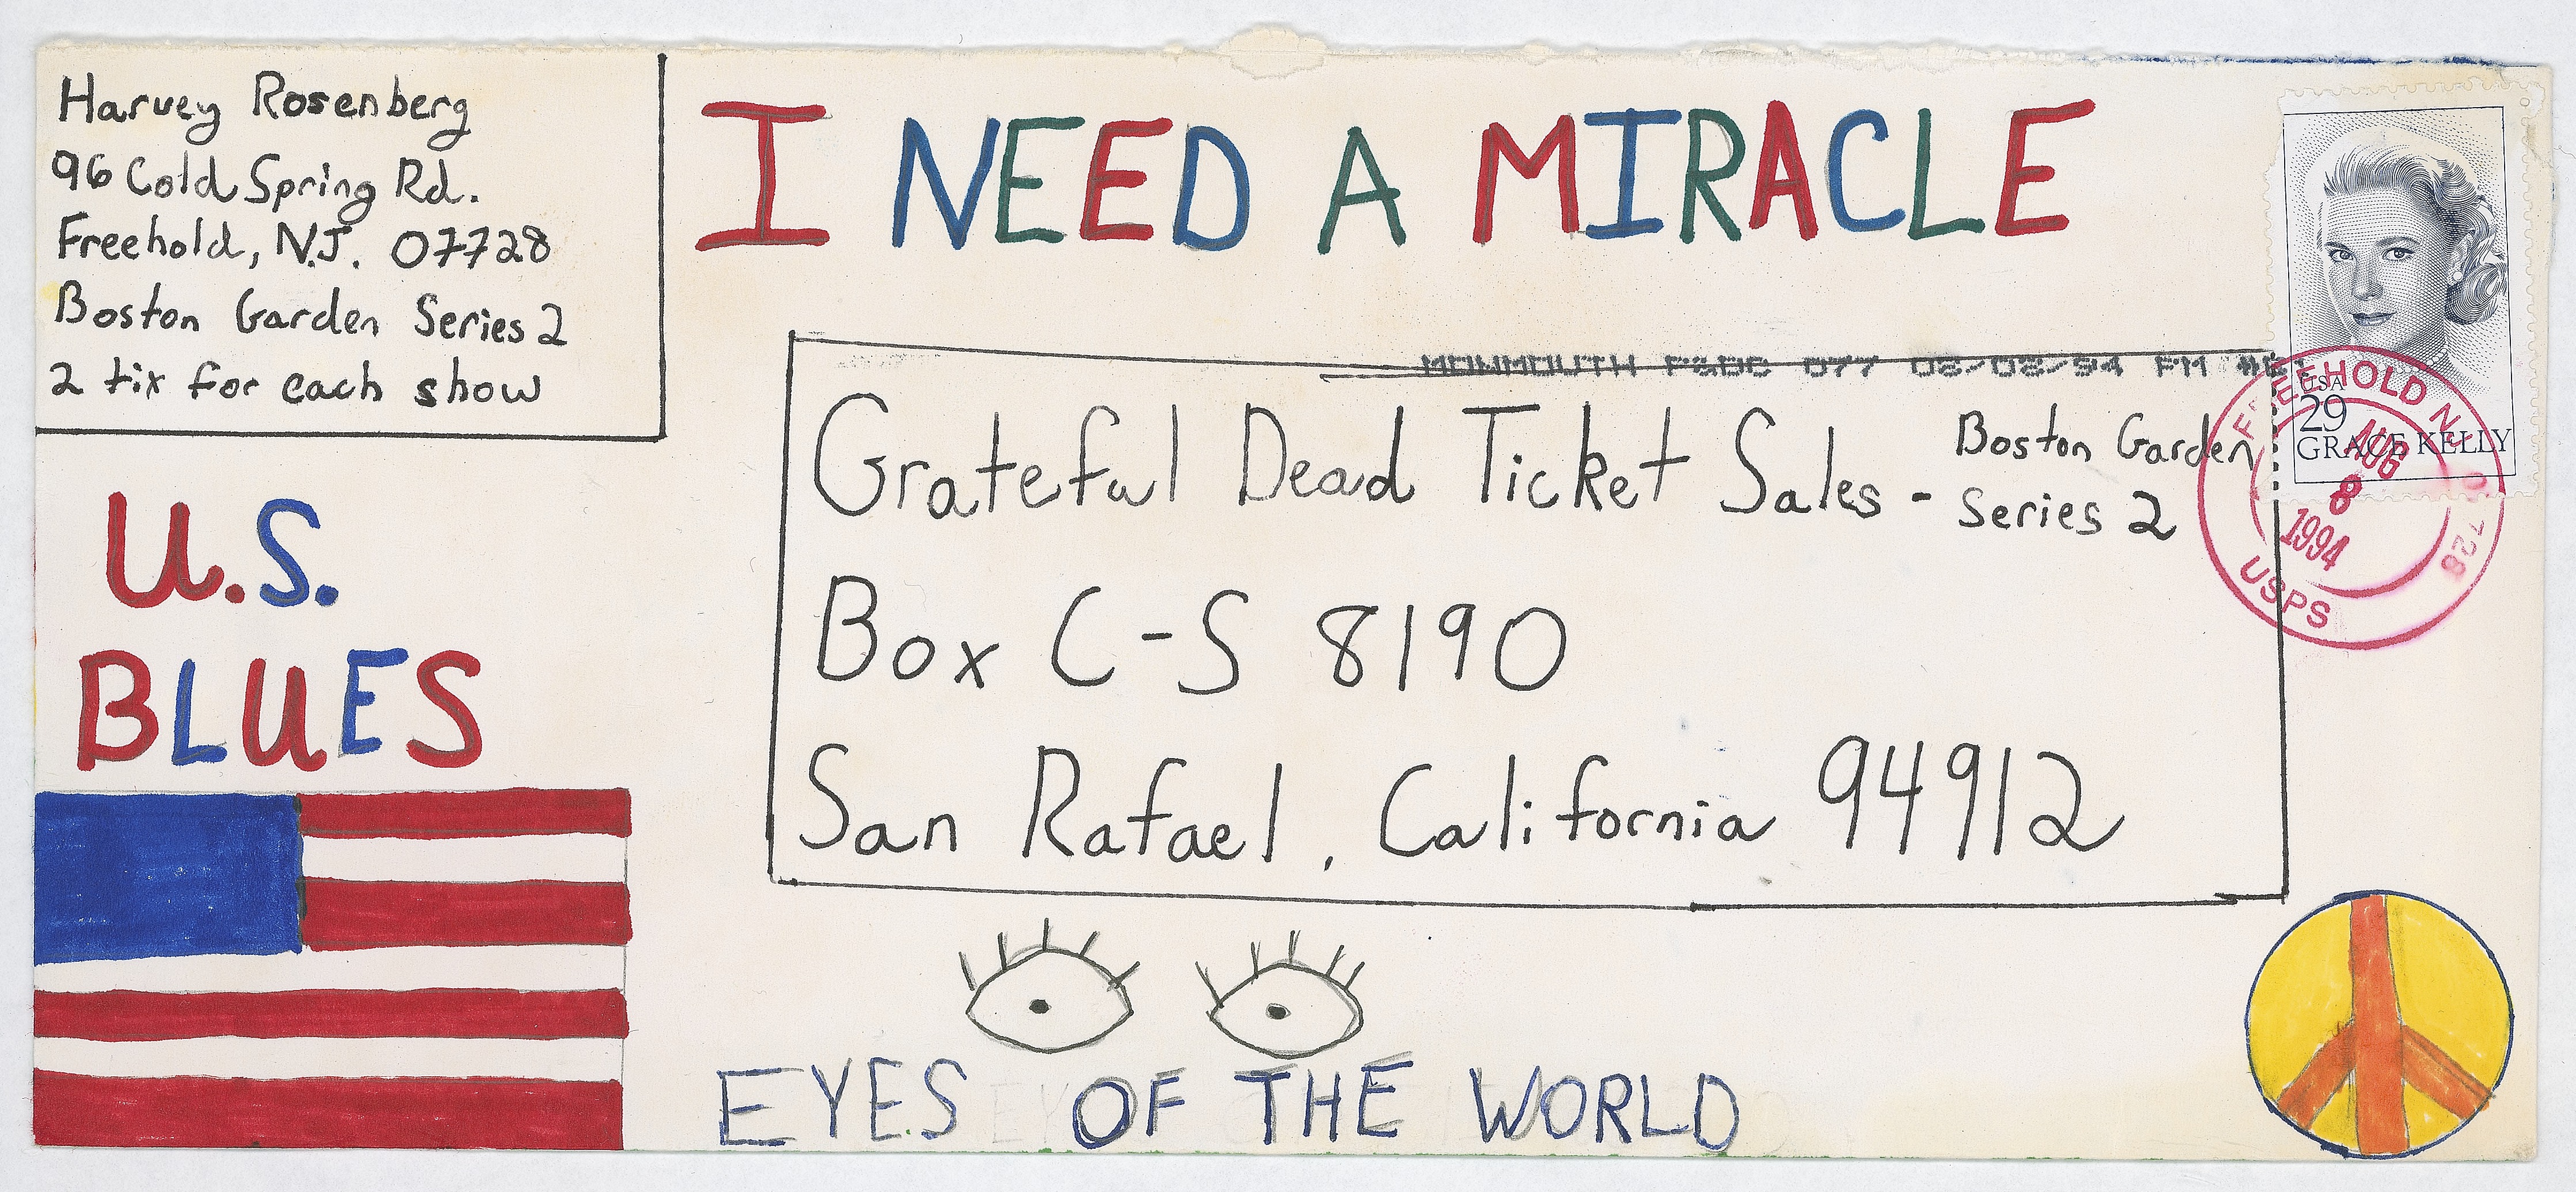 Harvey Rosenberg
96 Cold Spring Rd.
Freehold, N.J. 07728
Boston Garden Series 2
2 tix for each show
I NEED A MIRACLE
USA
29
GRACE KELLY
MONMOUTH P&DC 077 08/08/94 PM
FREEHOLD NJ
AUG
8
1994
USPS
07728
Grateful Dead Ticket Sales - Boston Garden
Series 2
Box C-S 8190
San Rafael, California 94912
U.S.
BLUES
EYES OF THE WORLD